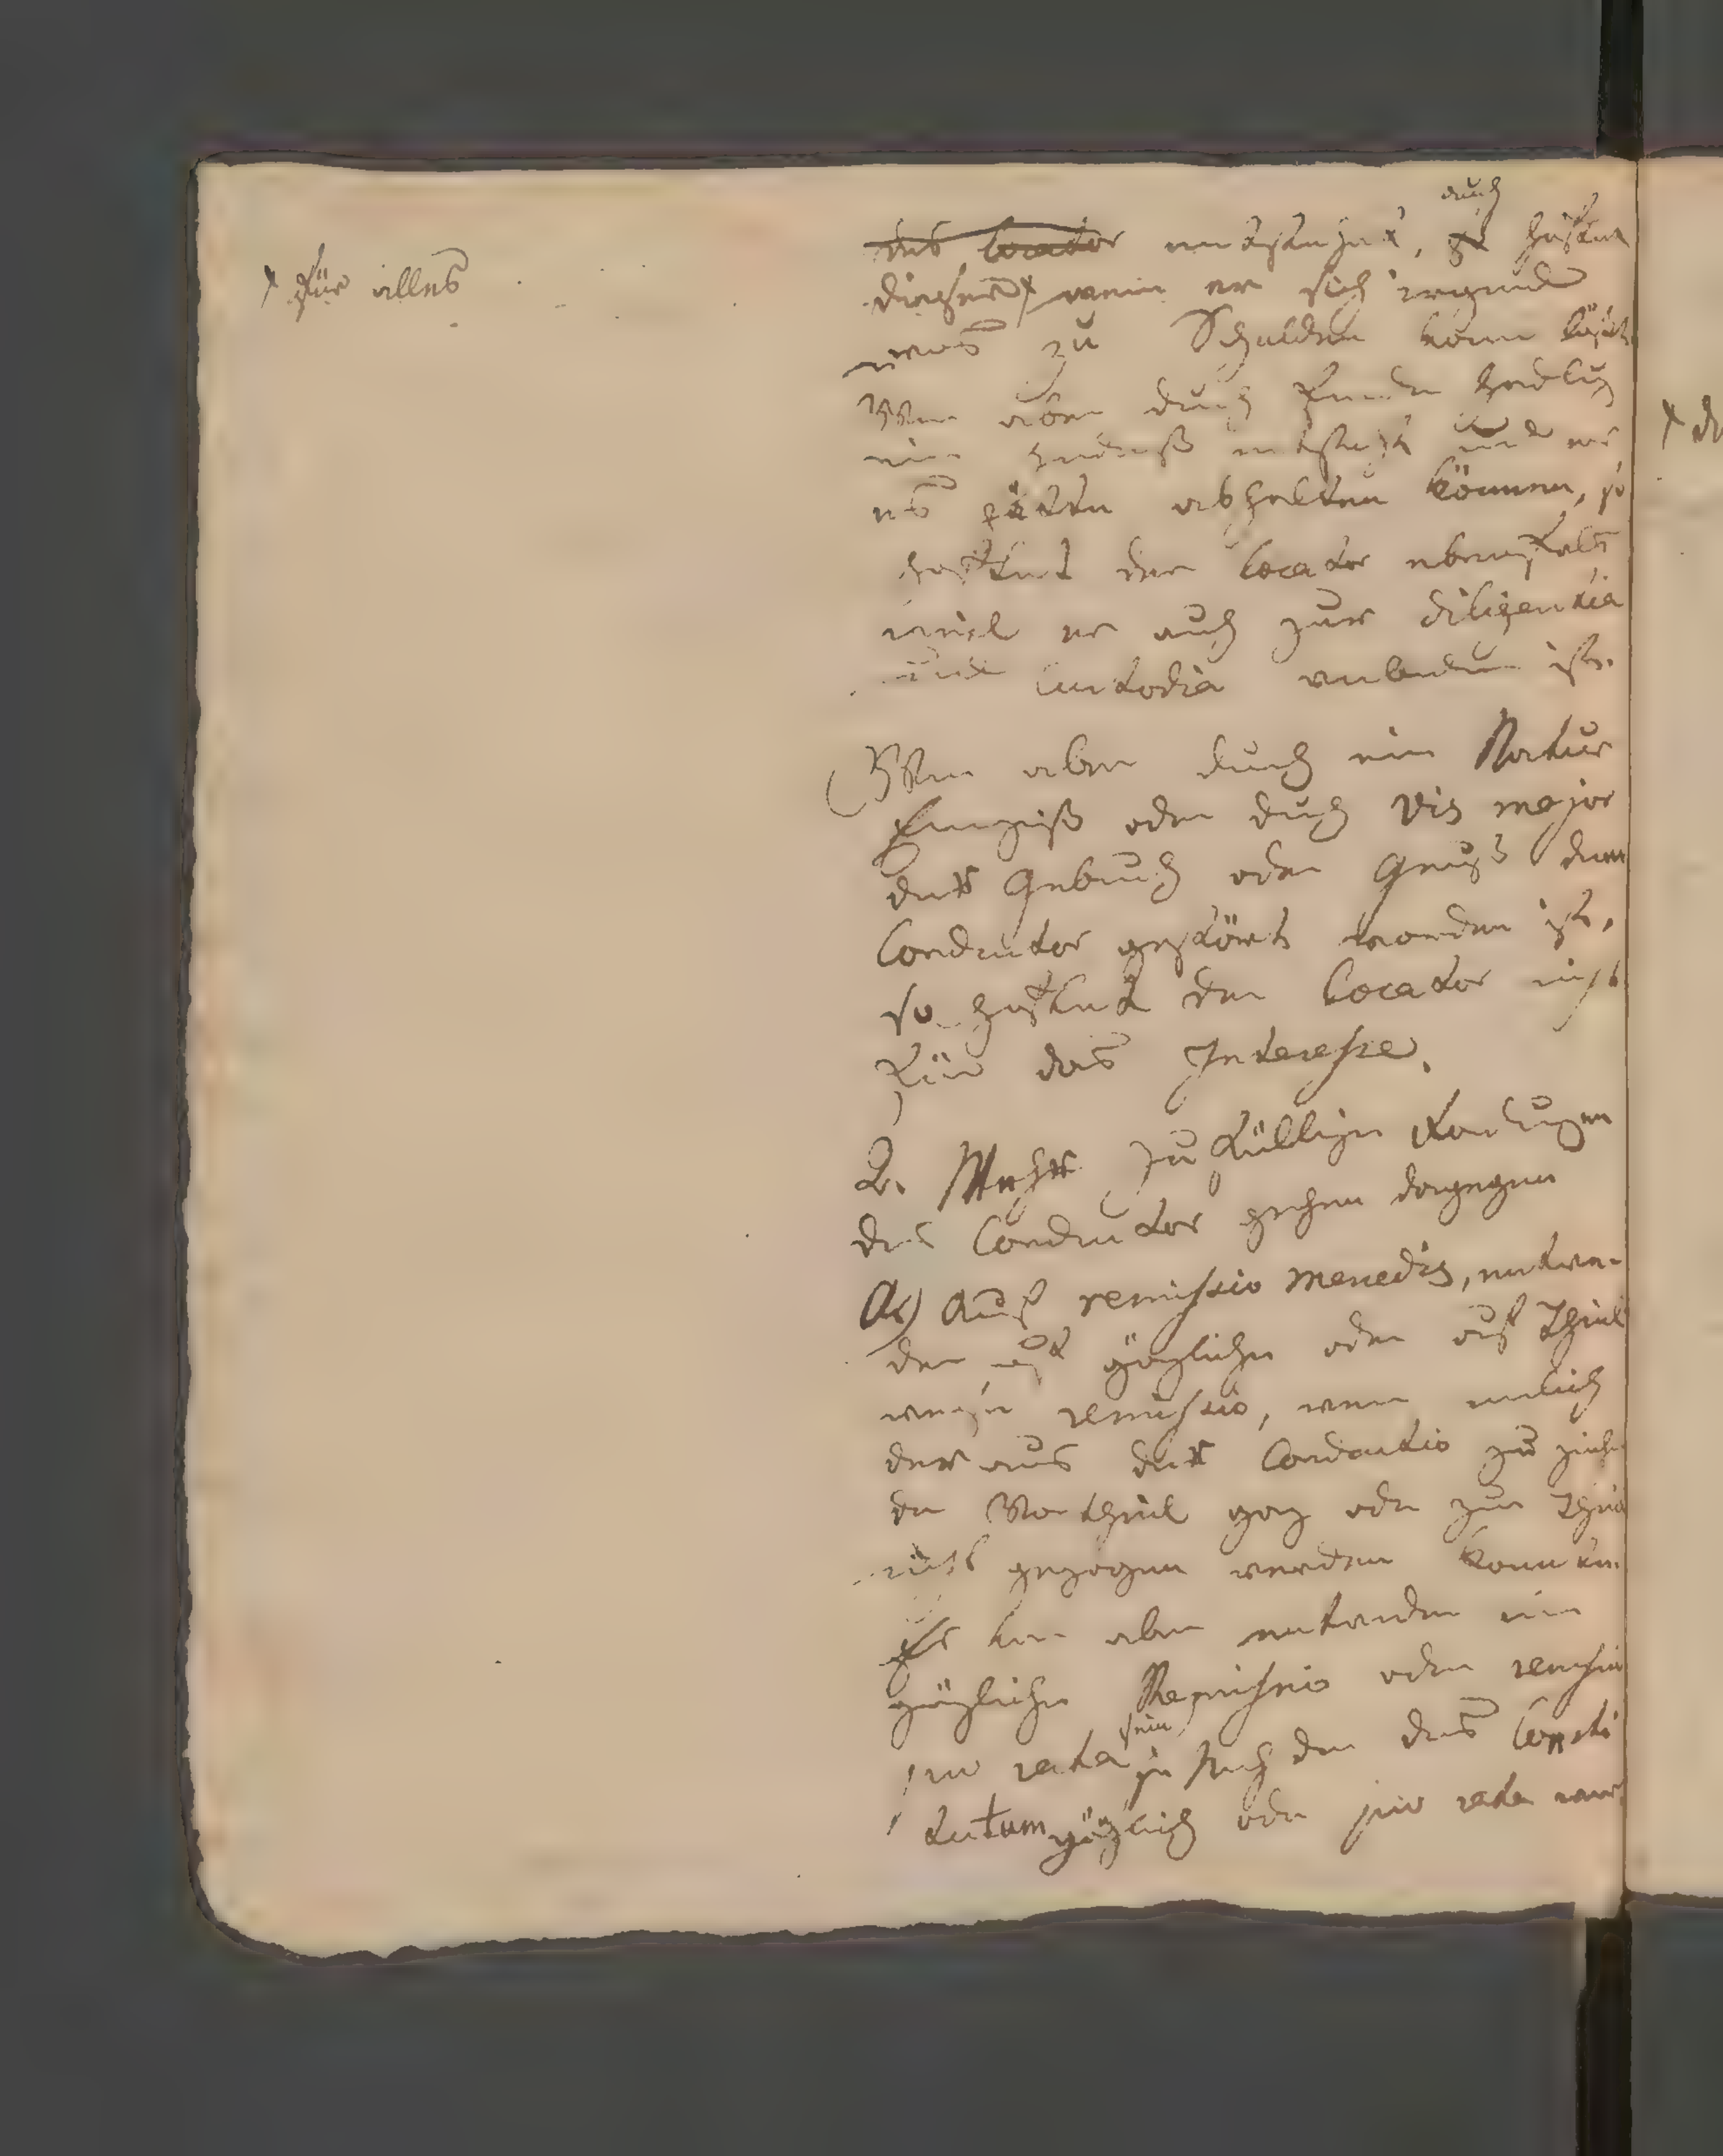 + für alles
auch
des Locator entstehet, so haftet
dieser + wenn er sich irgend
was zu Schulden kom läßt.
Wen aber durch fremde Handlug
ein Hinderniß entsteht und er
es hätte abhalten können, so
haftet der Locator ebenfals
weil er auch zur diligentia
und Custodia verbunden ist.
Wen aber durch ein Natur
Ereigniß oder durch vis major
der Gebrauch oder Genuß dem
Conductor gestört worden ist,
so haftet der Locator nicht
für das Interesse.
2. Mehr zufällige Forderugen
des Conductor gehen dagegen
a) auf remissio mercedis, entwe-
der auf gäzliche oder auf Theil
weise remissio, wenn nemlich
der aus der Conductio zu ziehe
de Vortheil ganz oder zum Theil
nicht gezogen werden konnte.
Es kan aber entweder eine
gäzliche Remissio oder remissio
pro rata sein
je nach dem das Consti
tutum gäzlich oder pro rata